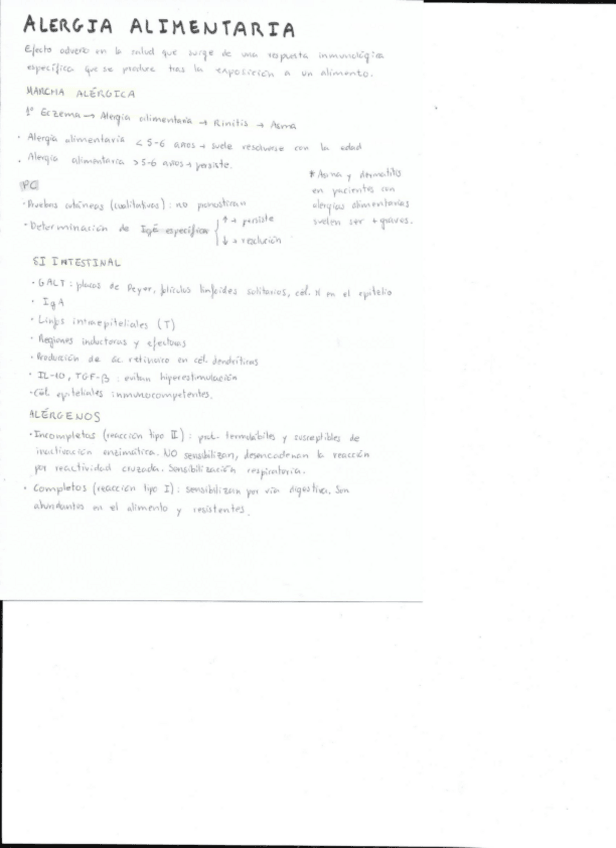 ALERGIA ALIMENTARIA
Efecto adverso en la salud que surge de una respuesta inmunológica
específica que se produce tras la exposición a un alimento.
MARCHA ALÉRGICA
1º Eczema → Alergia alimentaria → Rinitis → Asma
· Alergia alimentaria < 5-6 años → suele resolverse con la edad
· Alergia alimentaria > 5-6 años → persiste.
* Asma y dermatitis
en pacientes con
alergias alimentarias
suelen ser + graves.
· Pruebas cutáneas (cualitativas): no pronostican
· Determinación de IgE específica { ↑ → persiste
↓ → resolución
SI INTESTINAL
· GALT: placas de Peyer, folículos linfoides solitarios, cél. M en el epitelio
· IgA
· Linfos intraepiteliales (T)
· Regiones inductoras y efectoras
· Producción de ác. retinoico en cél. dendríticas
· IL-10, TGF-β: evitan hiperestimulación
· Cél. epiteliales inmunocompetentes.
ALÉRGENOS
· Incompletos (reacción tipo II): prot. termolábiles y susceptibles de
inactivación enzimática. NO sensibilizan, desencadenan la reacción
por reactividad cruzada. Sensibilización respiratoria.
· Completos (reacción tipo I): sensibilizan por vía digestiva. Son
abundantes en el alimento y resistentes.